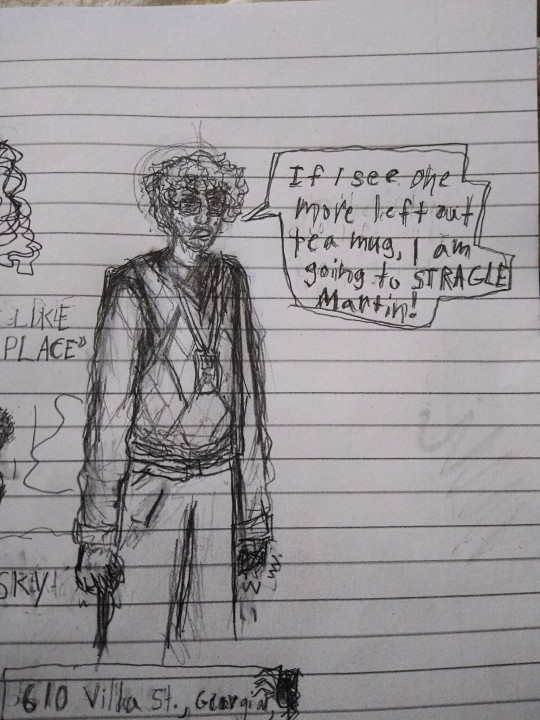 If I see one
more left out
tea mug, I am
going to STRAGLE
Martin!
LIKE
PLACE"
SKY
610 St., Georgia,